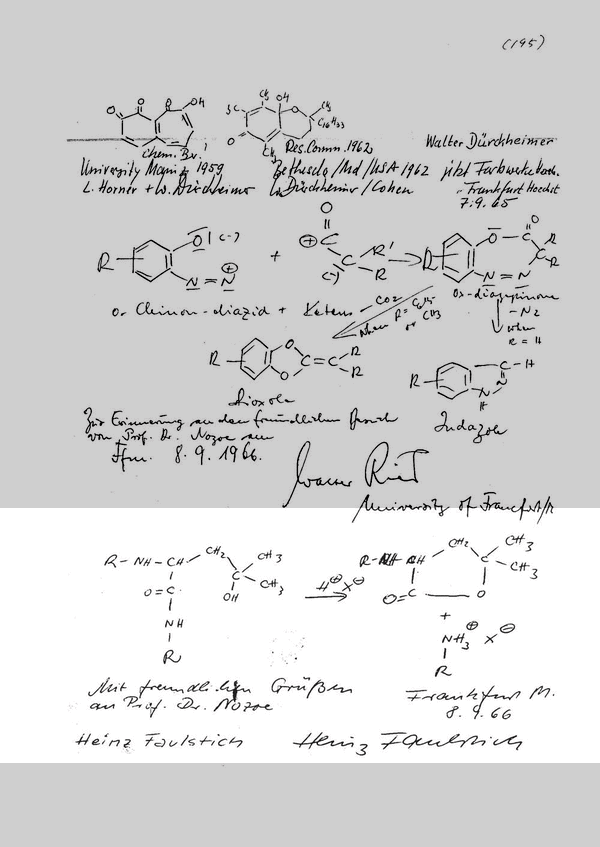 (195)
O O O OH
CH3 OH O CH3
H3C C16H33
O CH3
Chem. Ber. Res. Comm. 1962 Walter Dürckheimer
University Mainz 1959 Bethesda/Md/USA 1962 jetzt Farbwerke Hoechst
L. Horner + W. Dürckheimer W. Dürckheimer/Cohen Frankfurt Hoechst
7.9.65
R O (-) N = N ⊕ + O ⊕ C C (-) R' R R O C O C R R N = N
o-Chinon-diazid + Ketene - CO2 Ox-diazepinone
wenn R = C6H5 or CH3
- N2
wenn
R = H
R O O C = C R R
R C - H N N H
Dioxole
Indazole
Zur Erinnerung an den freundlichen Besuch
von Prof. Dr. Nozoe am
Ffm. 8.9.1966.
Walter Ried
University of Francfort/M
R - NH - CH CH2 CH3
C CH3
O = C OH
NH
R
H⊕ X⊖
R - NH CH CH2 C CH3 CH3
O = C O
+
NH3 ⊕ X ⊖
R
Mit freundlichen Grüßen
an Prof. Dr. Nozoe
Frankfurt M.
8.9.66
Heinz Faulstich Heinz Faulstich